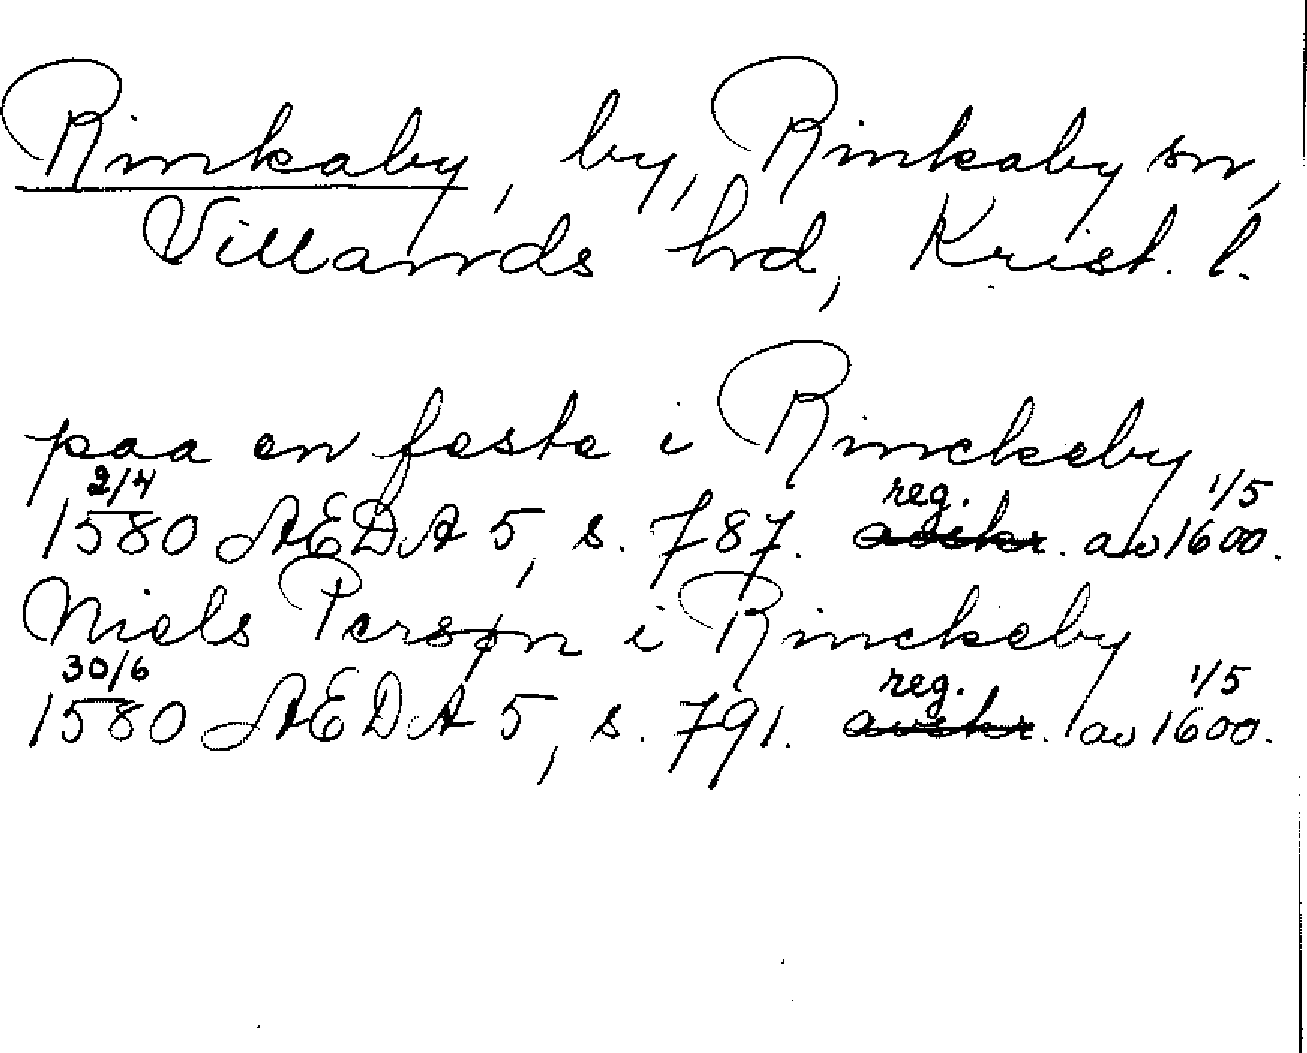 Rinkaby, by, Rinkaby sn,
Villands hd, Krist. l.
paa en feste i Rinckeby
2/4 reg. 1/5
1580 ÆDA 5, s. 787. avskr. av 1600.
Niels Persøn i Rinckeby
30/6 reg. 1/5
1580 ÆDA 5, s. 791. avskr. av 1600.